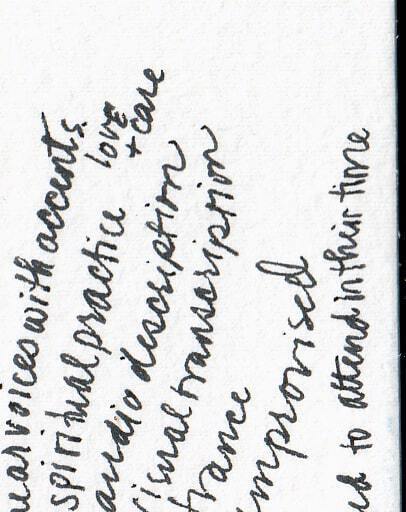 voices with accents
spiritual practice love + care
audio description
visual transcription
trance
improvised
to attend in their time